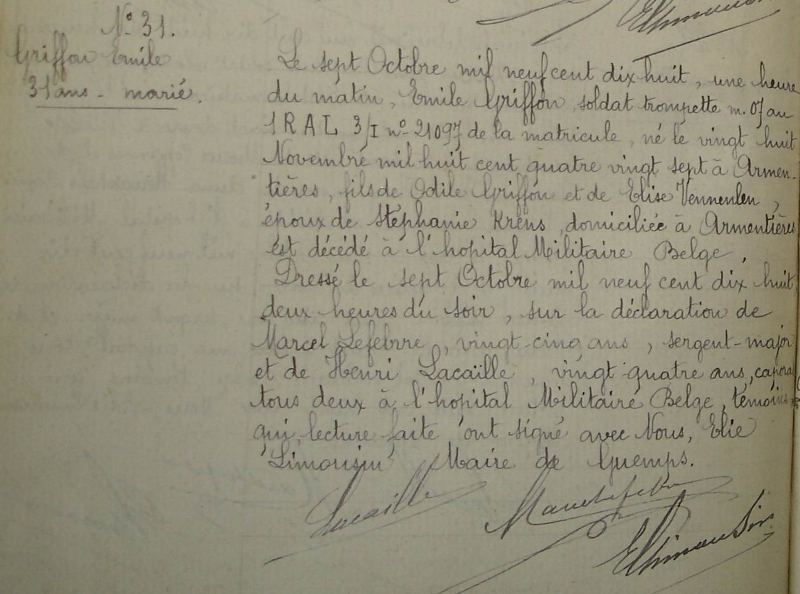 ELimousin
N° 31.
Griffon Emile
31 ans - marié.
Le sept Octobre mil neuf cent dix huit, une heure
du matin, Emile Griffon, soldat trompette m. 07 au
1 R A L 3/I n° 21097 de la matricule, né le vingt huit
Novembre mil huit cent quatre vingt sept à Armen-
tières, fils de Odile Griffon et de Elise Vennenlen,
époux de Stéphanie Krens, domiciliée à Armentières
est décédé à l'hopital Militaire Belge.
Dressé le sept Octobre mil neuf cent dix huit,
deux heures du soir, sur la déclaration de
Marcel Lefebvre, vingt-cinq ans, sergent-major
et de Henri Lacaille, vingt quatre ans, caporal
tous deux à l'hopital Militaire Belge, témoins
qui, lecture faite ont signé avec Nous, Elie
Limousin Maire de Guemps.
Lacaille Marcel Lefebvre
ELimousin